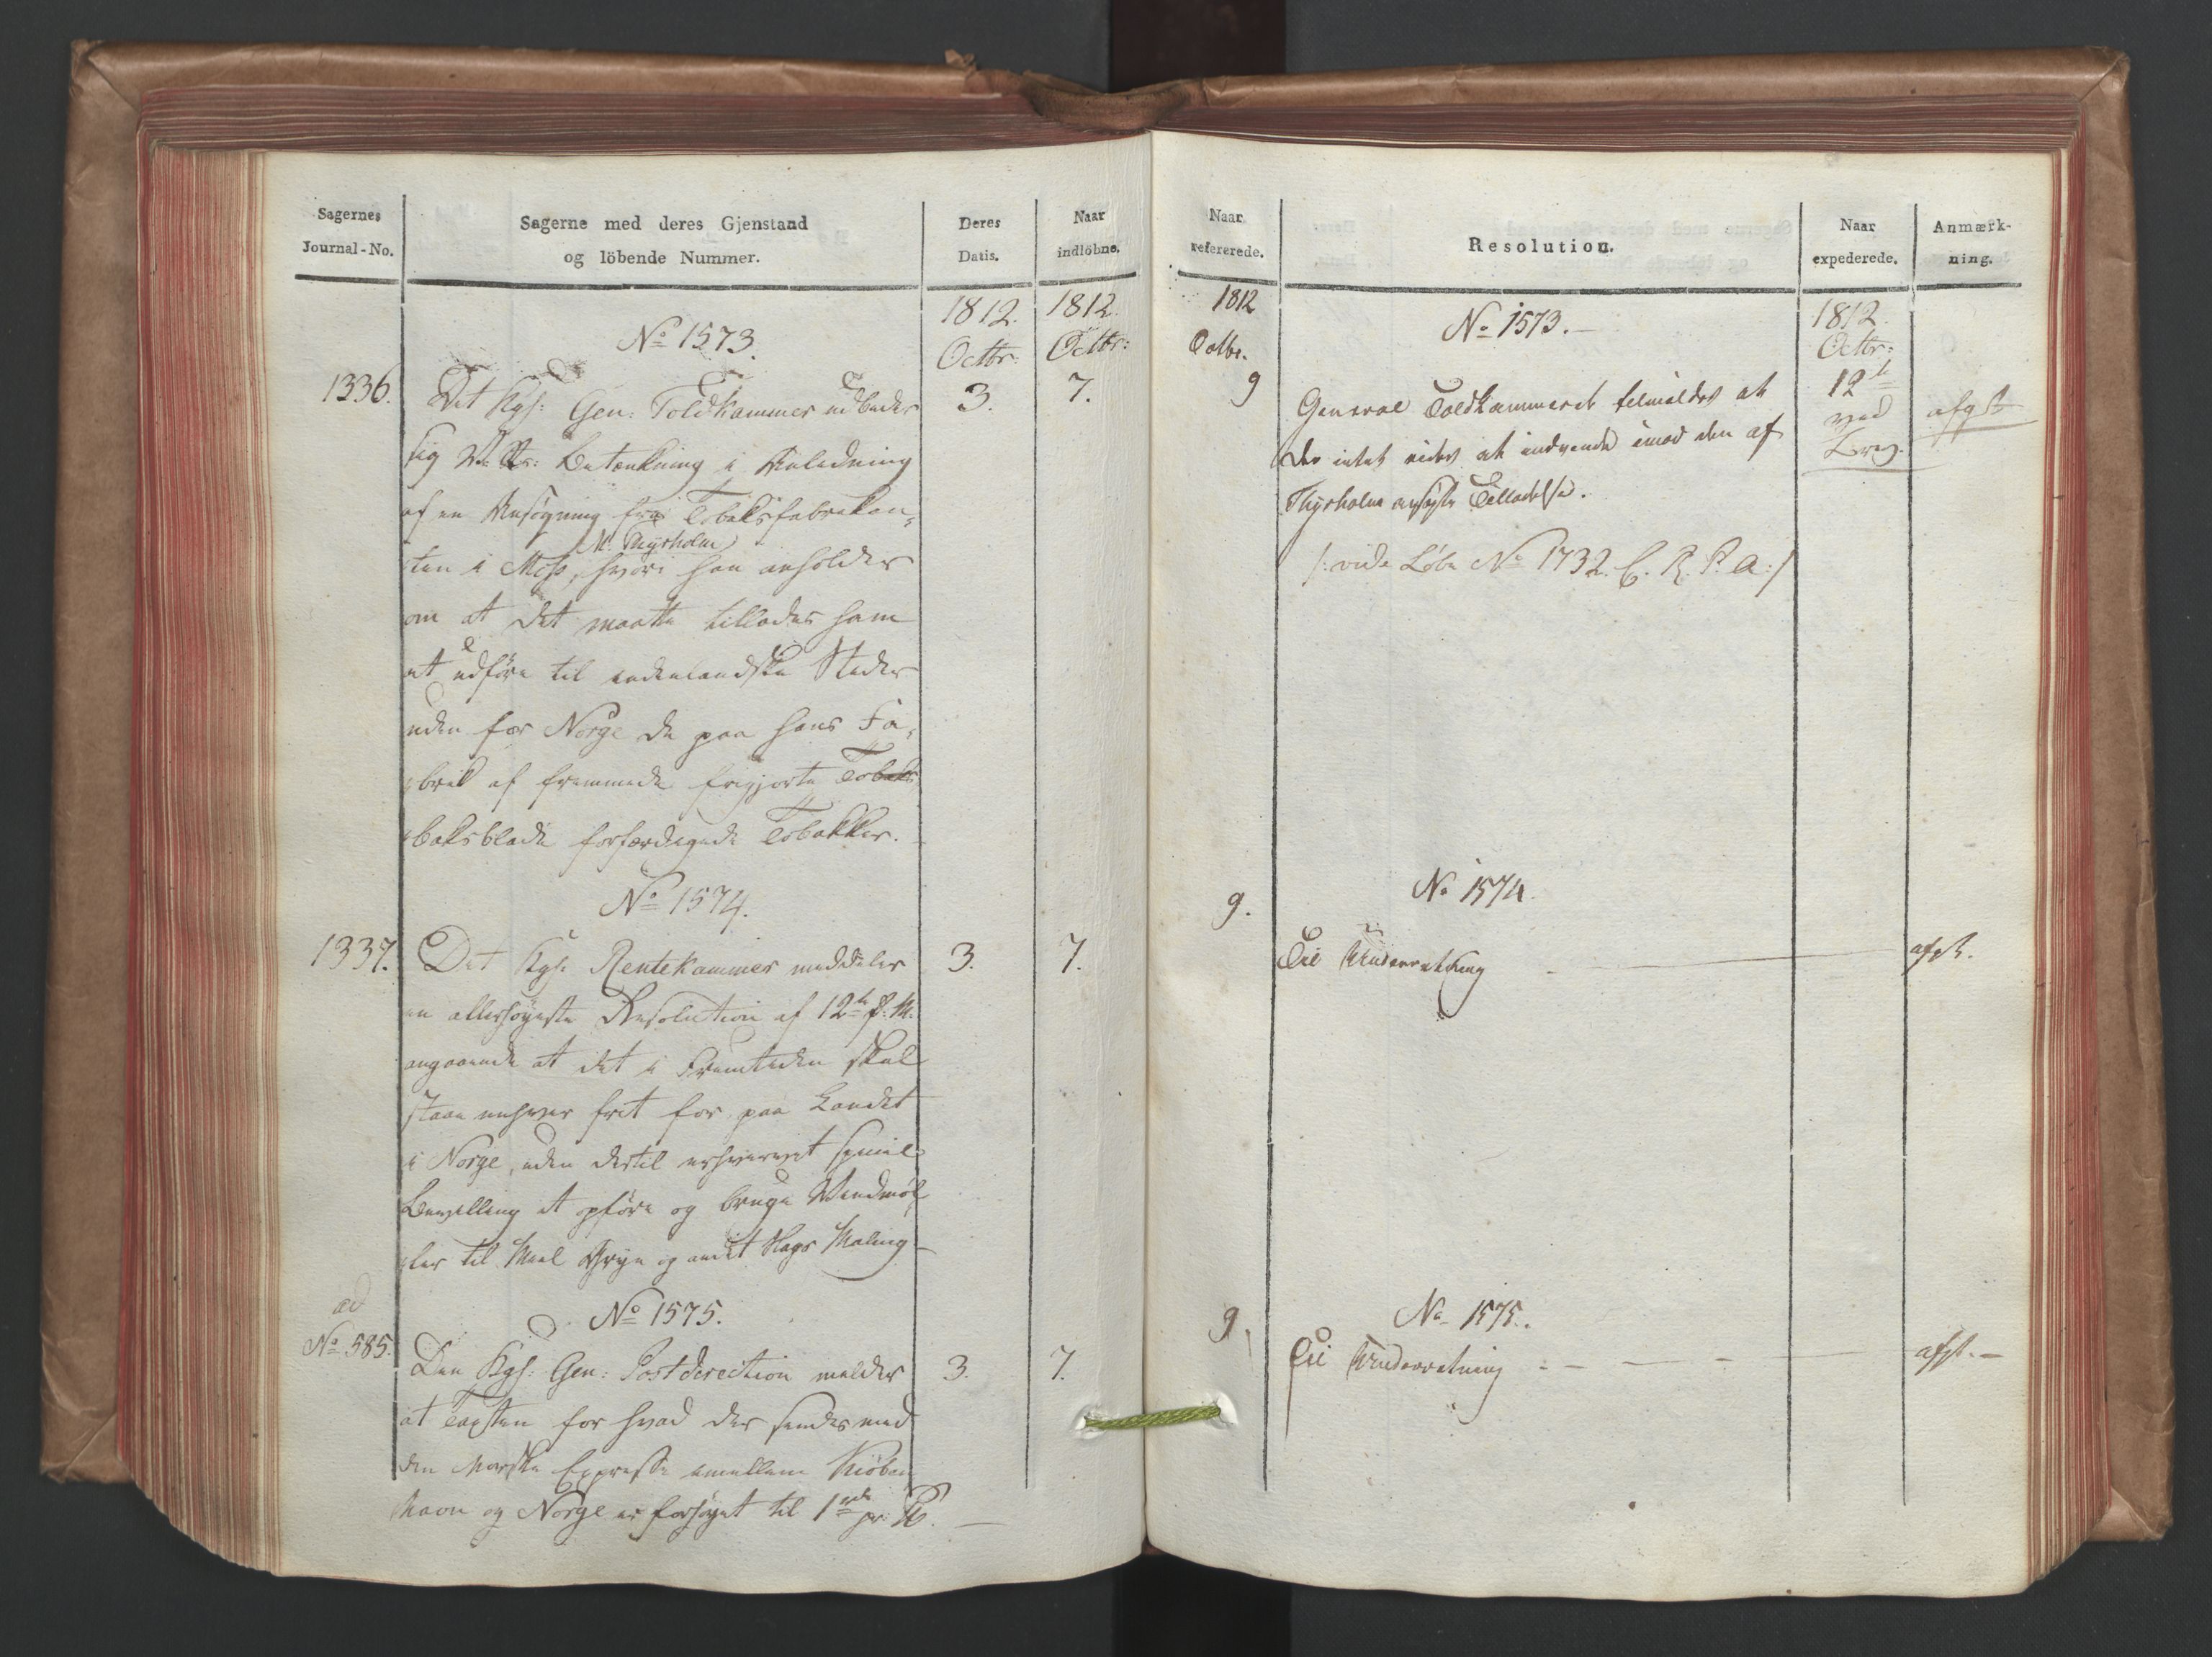 Sagernes
Journal-No.
Sagerne med deres Gjenstand
og löbende Nummer.
Deres
Datis.
Naar
indlöbne.
1812.
Octbr:
1812.
Octbr:
No 1573.
1336.
Det Kgl: Gen: Toldkammer udbeder
3.
7.
sig Betænkning i Anledning
af en Ansøgning fra Tobaksfabrikan-
M. Thyrholm
ten i Moss, hvori han anholder
om at det maatte tillades ham
at udføre til indenlandske Steder
uden for Norge de paa hans Fa-
brik af fremmede frigjorte Tobaks
baksblade forfærdigede Tobakker.
No 1574.
1337.
Det Kgl: Rentekammer meddeler
3.
7.
en allerhøyeste Resolution af 12te f: M.
angaaende at det i Fremtiden skal
staae enhver frit for paa Landet
i Norge, uden dertil erhvervet special
Bevilling at opføre og bruge Vindmøl-
ler til Meel Gryn og andet Slags Maling
ad
No 585.
No 1575.
Den Kgl: Gen: Postdirection melder
3.
7.
at Taxten for hvad der sendes med
den Norske Expresse imellem Kiöben
havn og Norge er forhøyet til 1 rdr pr:
Naar
refererede.
Resolution.
Naar
expederede.
Anmærk-
ning.
1812
Octbr.
1812
Octbr:
No 1573.
9
General Toldkammeret tilmeldes at
12te
ved
Brev.
afgt
der intet vides at indvende imod den af
Thyrholm ansøgte Tilladelse.
/: vide Löbe No 1732. C. R. P. A:/
9.
No 1574.
Til Underretning
afgt.
9.
No 1575.
Til Underretning
afgt.